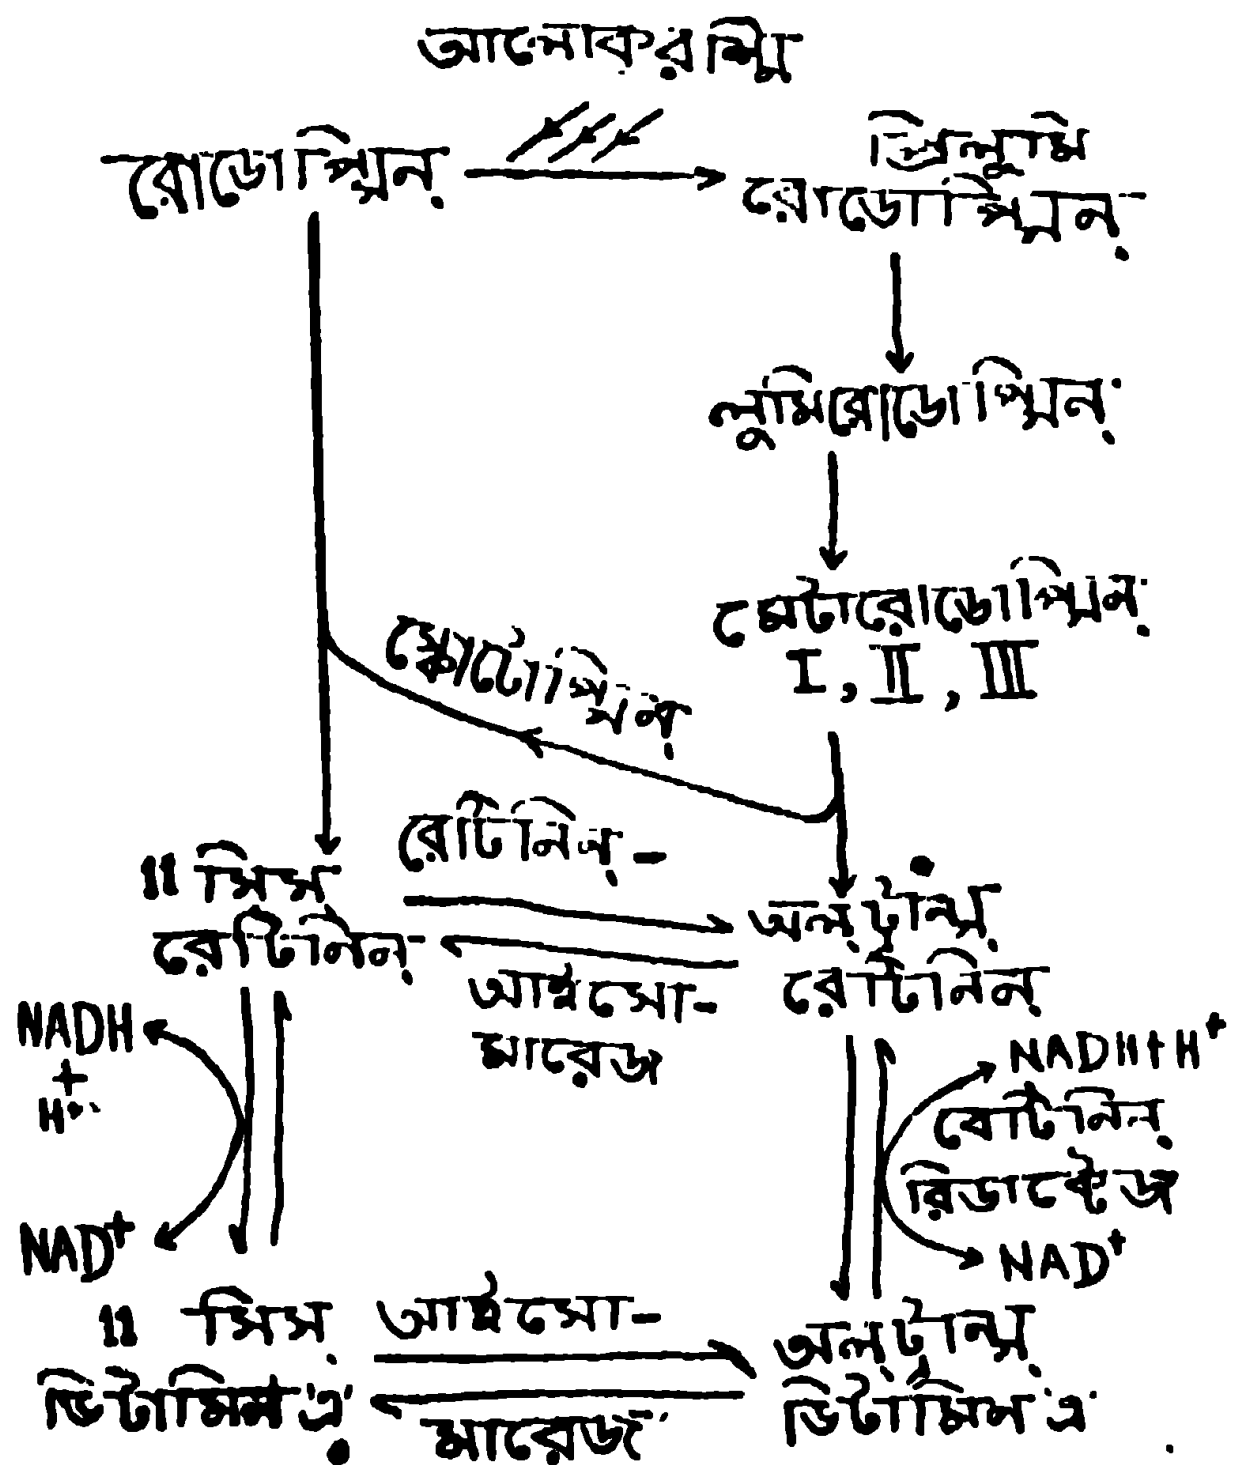 আলোকরশ্মি
রোডোপ্সিন্
প্রিলুমি
রোডোপ্সিন্
লুমিরোডোপ্সিন্
মেটারোডোপ্সিন্
I, II, III
স্কোটোপ্সিন্
রেটিনিন্-
11 সিস্
রেটিনিন্
অল্ ট্রান্স্
রেটিনিন্
আইসো-
মারেজ
NADH
+
H+
NADH+H+
রেটিনিন্
রিডাক্টেজ
NAD+
NAD+
11 সিস্
ভিটামিন 'এ'
আইসো-
মারেজ
অল্ ট্রান্স্
ভিটামিন 'এ'